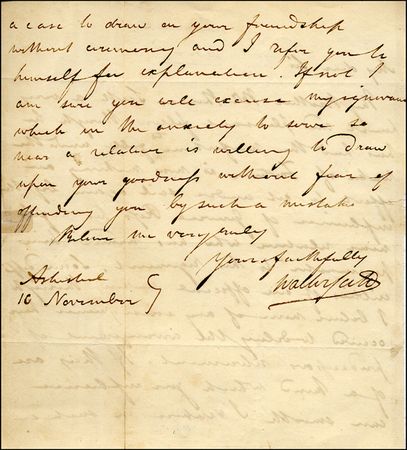 a case to draw on your friendship
without ceremony and I refer you to
himself for explanation. If not I
am sure you will excuse my ignorance
which in the anxiety to serve so
near a relative is willing to draw
upon your goodness without fear of
offending you by such a mistake
Believe me very truly
Yours faithfully
Walter Scott
Ashestiel
16 November